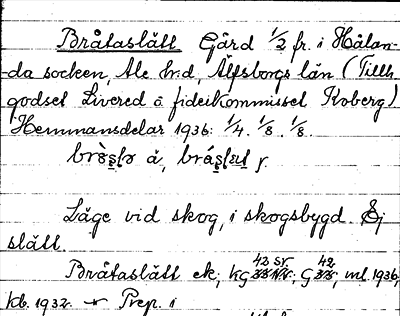 Bråtaslätt Gård 1/2 fr. i Hålan-
da socken, Ale hrd, Älfsborgs län (Tillh.
godset Livered o fideikommisset Koberg)
Hemmansdelar 1936: 1/4. 1/8. 1/8.
å,
Läge vid skog, i skogsbygd. Ej
slätt.
Bråtaslätt ek, KG 43 SV G 42 ml. 1936,
kb. 1932. Prep. i